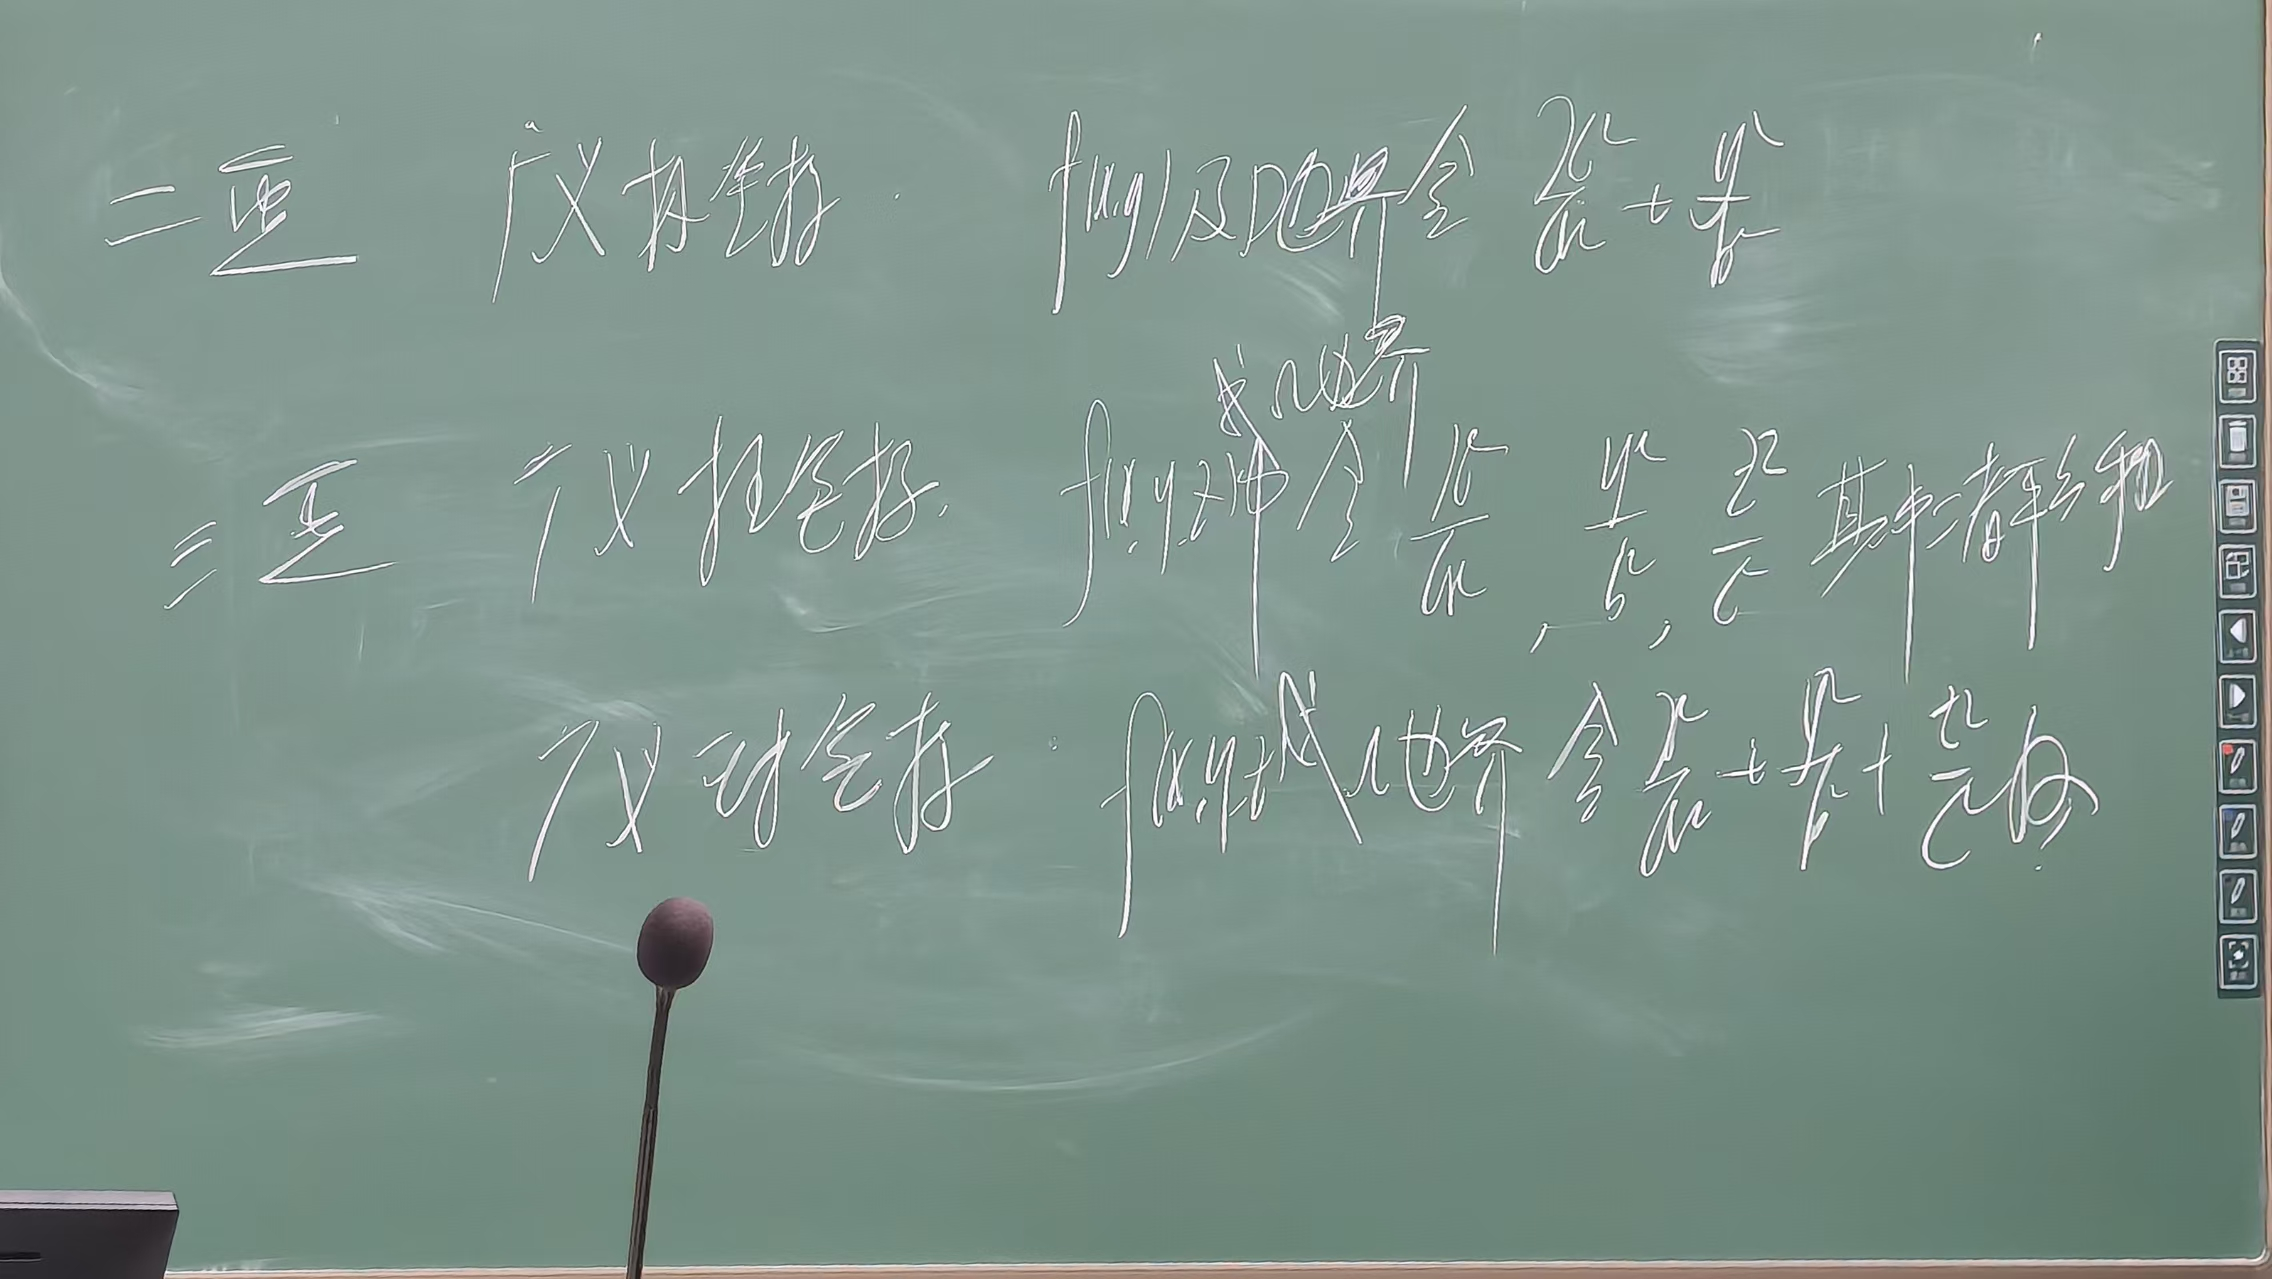 二重 广义极坐标. f(x,y)及D边界含 x²/a² + y²/b²
或Ω边界
三重 广义柱坐标. f(x,y,z)中含 x²/a², y²/b², z²/c² 其中二者平方和
广义球坐标. f(x,y,z)或Ω边界含 x²/a² + y²/b² + z²/c²